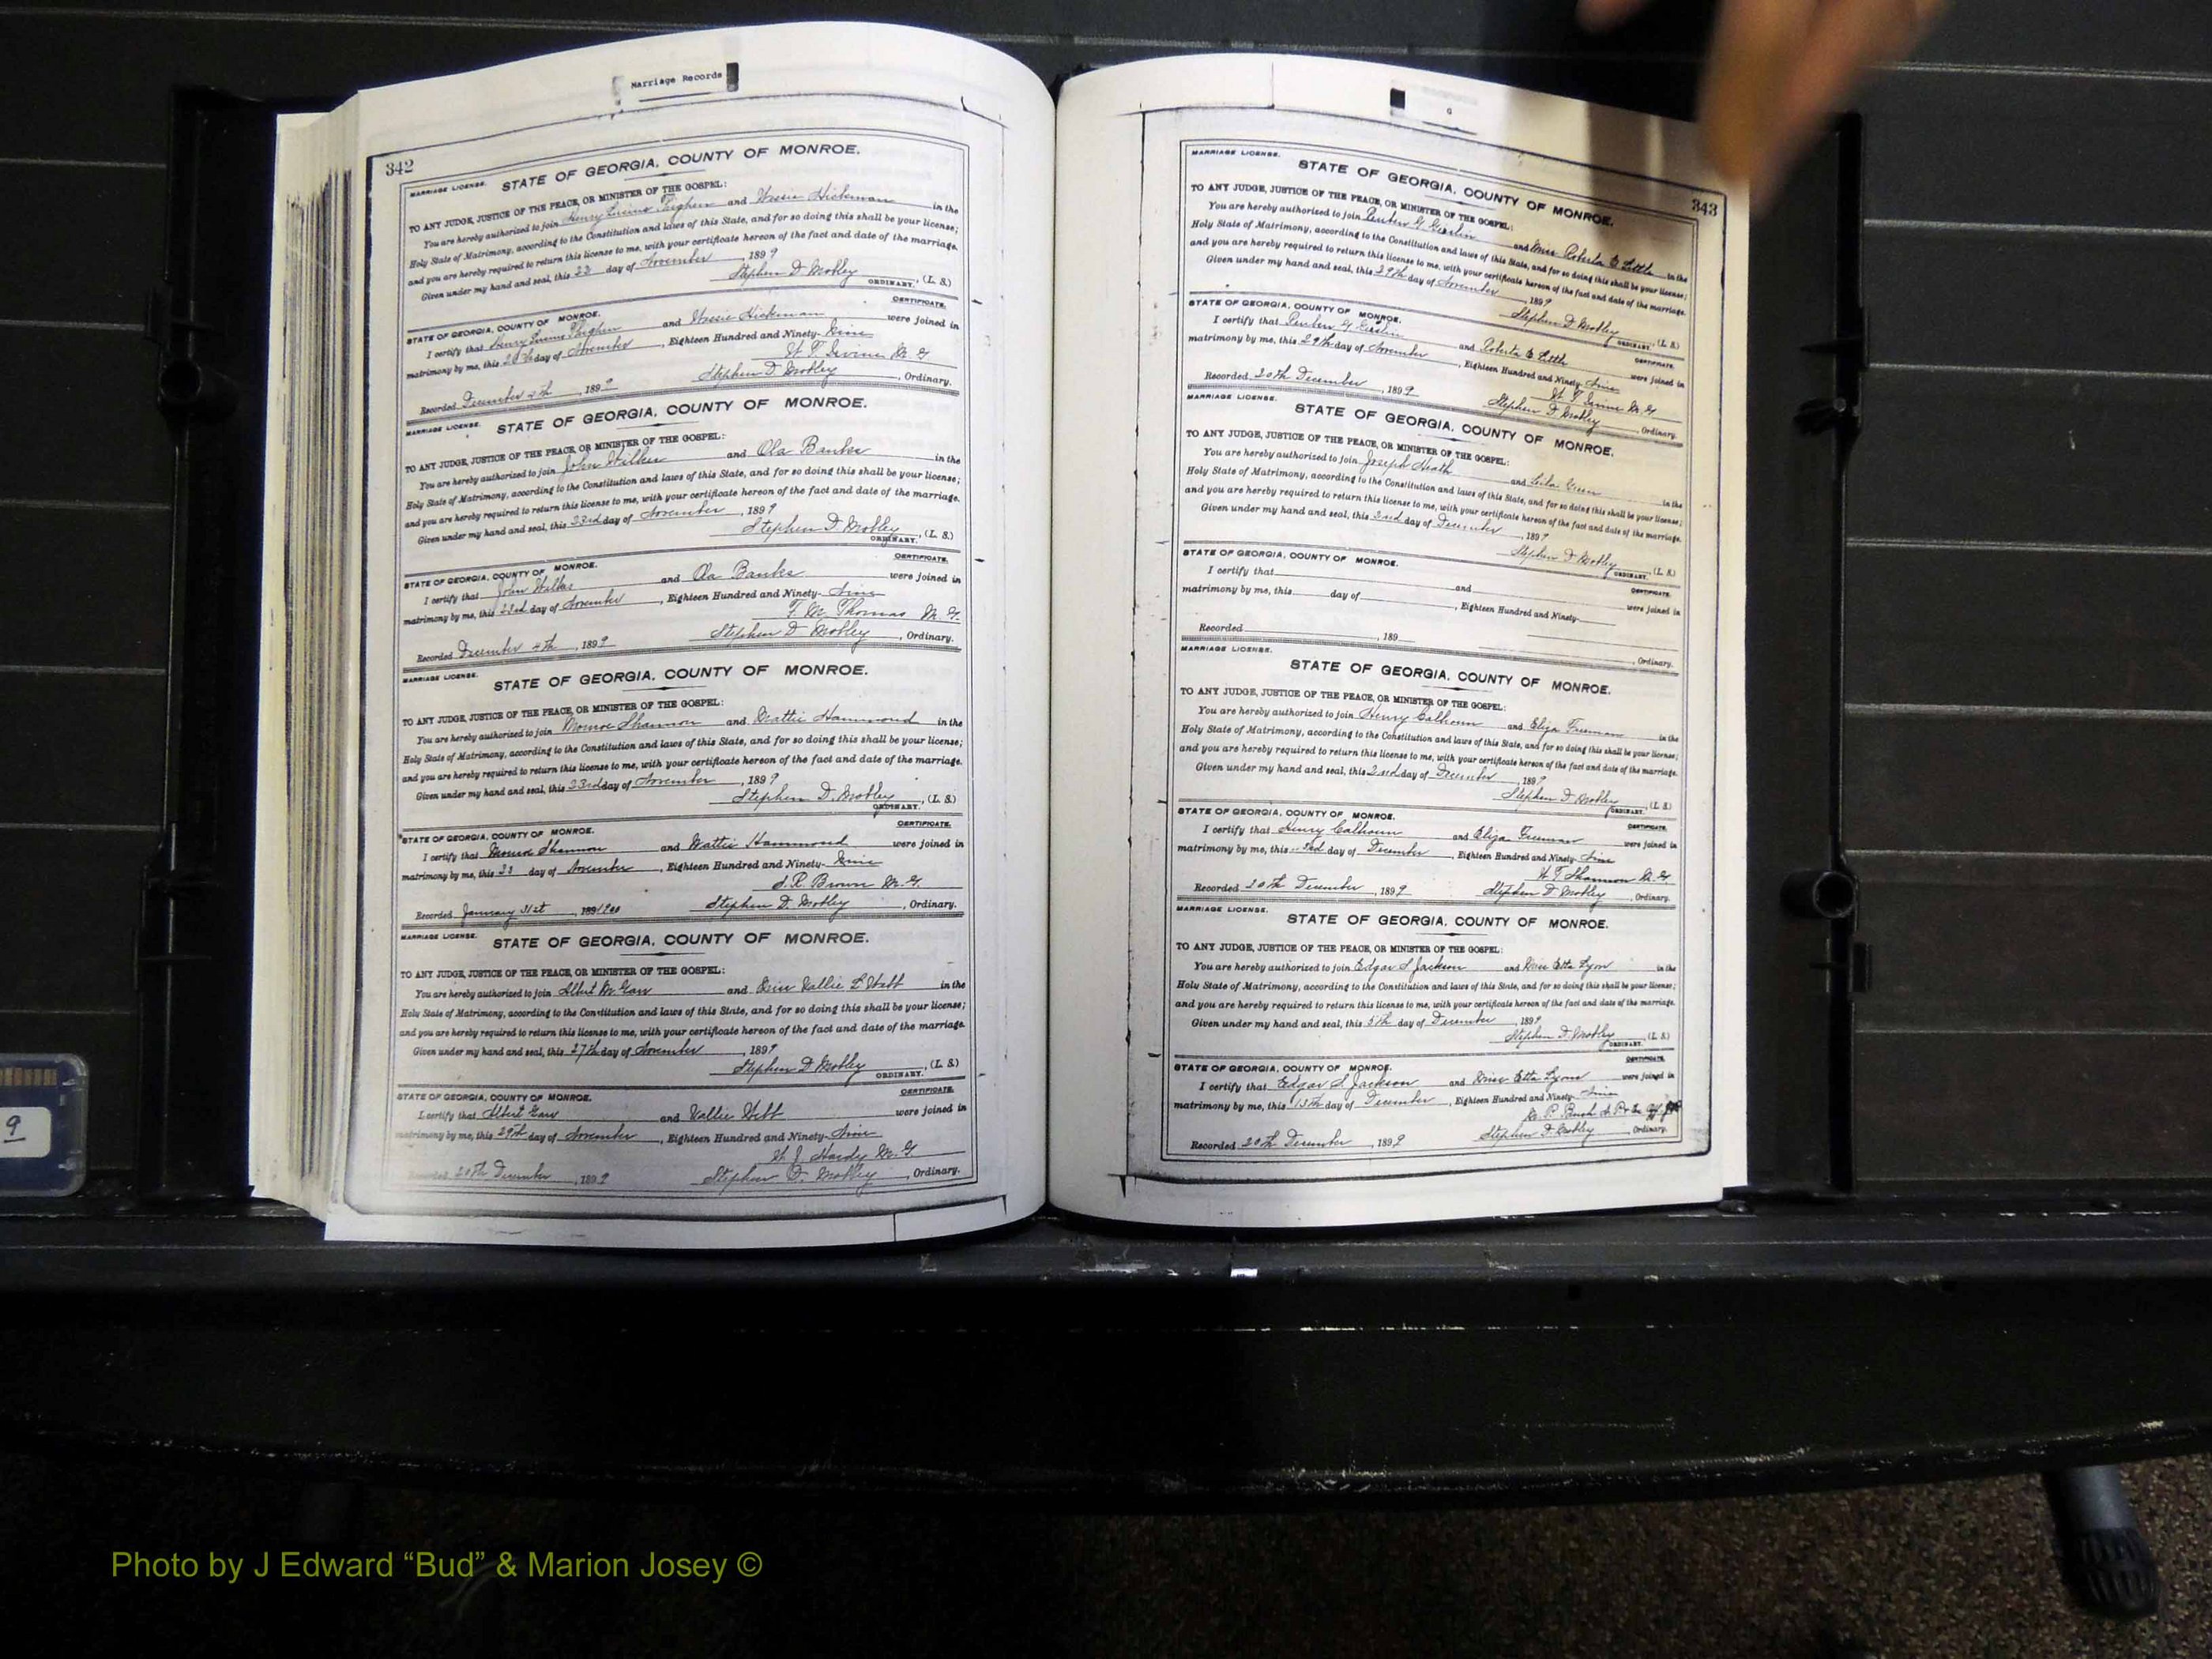 Marriage Records
342
MARRIAGE LICENSE. STATE OF GEORGIA, COUNTY OF MONROE.
TO ANY JUDGE, JUSTICE OF THE PEACE, OR MINISTER OF THE GOSPEL:
You are hereby authorized to join Henry and Hickman in the
Holy State of Matrimony, according to the Constitution and laws of this State, and for so doing this shall be your license;
and you are hereby required to return this license to me, with your certificate hereon of the fact and date of the marriage.
Given under my hand and seal, this 22 day of November, 1899
Stephen D Mobley (L. S.)
ORDINARY.
CERTIFICATE.
STATE OF GEORGIA, COUNTY OF MONROE.
I certify that Henry and Hickman were joined in
matrimony by me, this day of November, Eighteen Hundred and Ninety-Nine
M. G
Recorded December 4th, 1899 Stephen D Mobley, Ordinary.
MARRIAGE LICENSE. STATE OF GEORGIA, COUNTY OF MONROE.
TO ANY JUDGE, JUSTICE OF THE PEACE, OR MINISTER OF THE GOSPEL:
You are hereby authorized to join John Wilkes and Ola Banks in the
Holy State of Matrimony, according to the Constitution and laws of this State, and for so doing this shall be your license;
and you are hereby required to return this license to me, with your certificate hereon of the fact and date of the marriage.
Given under my hand and seal, this 23rd day of November, 1899
Stephen D. Mobley, (L. S.)
ORDINARY.
CERTIFICATE.
STATE OF GEORGIA, COUNTY OF MONROE.
I certify that John Wilkes and Ola Banks were joined in
matrimony by me, this 23rd day of November, Eighteen Hundred and Ninety-Nine
F. M. Thomas M. G.
Recorded December 4th, 1899 Stephen D Mobley, Ordinary.
MARRIAGE LICENSE. STATE OF GEORGIA, COUNTY OF MONROE.
TO ANY JUDGE, JUSTICE OF THE PEACE, OR MINISTER OF THE GOSPEL:
You are hereby authorized to join Monroe Shannon and Mattie Hammond in the
Holy State of Matrimony, according to the Constitution and laws of this State, and for so doing this shall be your license;
and you are hereby required to return this license to me, with your certificate hereon of the fact and date of the marriage.
Given under my hand and seal, this 23rd day of November, 1899
Stephen D. Mobley, (L. S.)
ORDINARY.
CERTIFICATE.
STATE OF GEORGIA, COUNTY OF MONROE.
I certify that Monroe Shannon and Mattie Hammond were joined in
matrimony by me, this 23 day of November, Eighteen Hundred and Ninety-Nine
S. R. Brown M. G.
Recorded January 31st, 1900 Stephen D. Mobley, Ordinary.
MARRIAGE LICENSE. STATE OF GEORGIA, COUNTY OF MONROE.
TO ANY JUDGE, JUSTICE OF THE PEACE, OR MINISTER OF THE GOSPEL:
You are hereby authorized to join Albert M and Miss in the
Holy State of Matrimony, according to the Constitution and laws of this State, and for so doing this shall be your license;
and you are hereby required to return this license to me, with your certificate hereon of the fact and date of the marriage.
Given under my hand and seal, this 27th day of November, 1899
Stephen D Mobley, (L. S.)
ORDINARY.
CERTIFICATE.
STATE OF GEORGIA, COUNTY OF MONROE.
I certify that Albert and were joined in
matrimony by me, this 29th day of November, Eighteen Hundred and Ninety-Nine
Hardy M. G
Recorded 20th December, 1899 Stephen D. Mobley, Ordinary.
G
343
MARRIAGE LICENSE. STATE OF GEORGIA, COUNTY OF MONROE.
TO ANY JUDGE, JUSTICE OF THE PEACE, OR MINISTER OF THE GOSPEL:
You are hereby authorized to join Reuben G and Miss Roberta E Little in the
Holy State of Matrimony, according to the Constitution and laws of this State, and for so doing this shall be your license;
and you are hereby required to return this license to me, with your certificate hereon of the fact and date of the marriage.
Given under my hand and seal, this 29th day of November, 1899
Stephen D Mobley (L. S.)
ORDINARY.
CERTIFICATE.
STATE OF GEORGIA, COUNTY OF MONROE.
I certify that Reuben G and Roberta E Little were joined in
matrimony by me, this 29th day of November, Eighteen Hundred and Ninety-Nine
M. G
Recorded 20th December, 1899 Stephen D Mobley, Ordinary.
MARRIAGE LICENSE. STATE OF GEORGIA, COUNTY OF MONROE.
TO ANY JUDGE, JUSTICE OF THE PEACE, OR MINISTER OF THE GOSPEL:
You are hereby authorized to join Joseph Heath and Leila Green in the
Holy State of Matrimony, according to the Constitution and laws of this State, and for so doing this shall be your license;
and you are hereby required to return this license to me, with your certificate hereon of the fact and date of the marriage.
Given under my hand and seal, this 2nd day of December, 1899
Stephen D Mobley (L. S.)
ORDINARY.
CERTIFICATE.
STATE OF GEORGIA, COUNTY OF MONROE.
I certify that and were joined in
matrimony by me, this day of, Eighteen Hundred and Ninety-
Recorded, 189 Ordinary.
MARRIAGE LICENSE. STATE OF GEORGIA, COUNTY OF MONROE.
TO ANY JUDGE, JUSTICE OF THE PEACE, OR MINISTER OF THE GOSPEL:
You are hereby authorized to join Henry Calhoun and Eliza Freeman in the
Holy State of Matrimony, according to the Constitution and laws of this State, and for so doing this shall be your license;
and you are hereby required to return this license to me, with your certificate hereon of the fact and date of the marriage.
Given under my hand and seal, this 2nd day of December, 1899
Stephen D Mobley (L. S.)
ORDINARY.
CERTIFICATE.
STATE OF GEORGIA, COUNTY OF MONROE.
I certify that Henry Calhoun and Eliza Freeman were joined in
matrimony by me, this 3rd day of December, Eighteen Hundred and Ninety-Nine
Shannon M. G
Recorded 20th December, 1899 Stephen D Mobley, Ordinary.
MARRIAGE LICENSE. STATE OF GEORGIA, COUNTY OF MONROE.
TO ANY JUDGE, JUSTICE OF THE PEACE, OR MINISTER OF THE GOSPEL:
You are hereby authorized to join Edgar S Jackson and Miss Etta Lyon in the
Holy State of Matrimony, according to the Constitution and laws of this State, and for so doing this shall be your license;
and you are hereby required to return this license to me, with your certificate hereon of the fact and date of the marriage.
Given under my hand and seal, this 5th day of December, 1899
Stephen D. Mobley (L. S.)
ORDINARY.
CERTIFICATE.
STATE OF GEORGIA, COUNTY OF MONROE.
I certify that Edgar S Jackson and Miss Etta Lyons were joined in
matrimony by me, this 13th day of December, Eighteen Hundred and Ninety-Nine
Recorded 20th December, 1899 Stephen D. Mobley, Ordinary.
9
Photo by J Edward “Bud” & Marion Josey ©